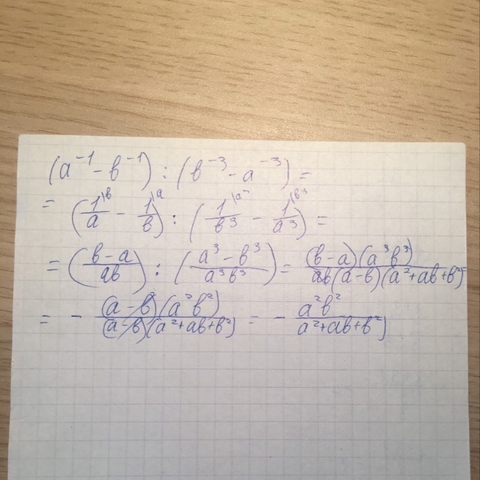 (a⁻¹ - b⁻¹) : (b⁻³ - a⁻³) =
= (1/a^{\b} - 1/b^{\a}) : (1/b³^{\a³} - 1/a³^{\b³}) =
= ((b-a)/ab) : ((a³-b³)/a³b³) = (b-a)(a³b³)/ab(a-b)(a²+ab+b²)
= - (a-b)(a²b²)/(a-b)(a²+ab+b²) = - a²b²/a²+ab+b²)